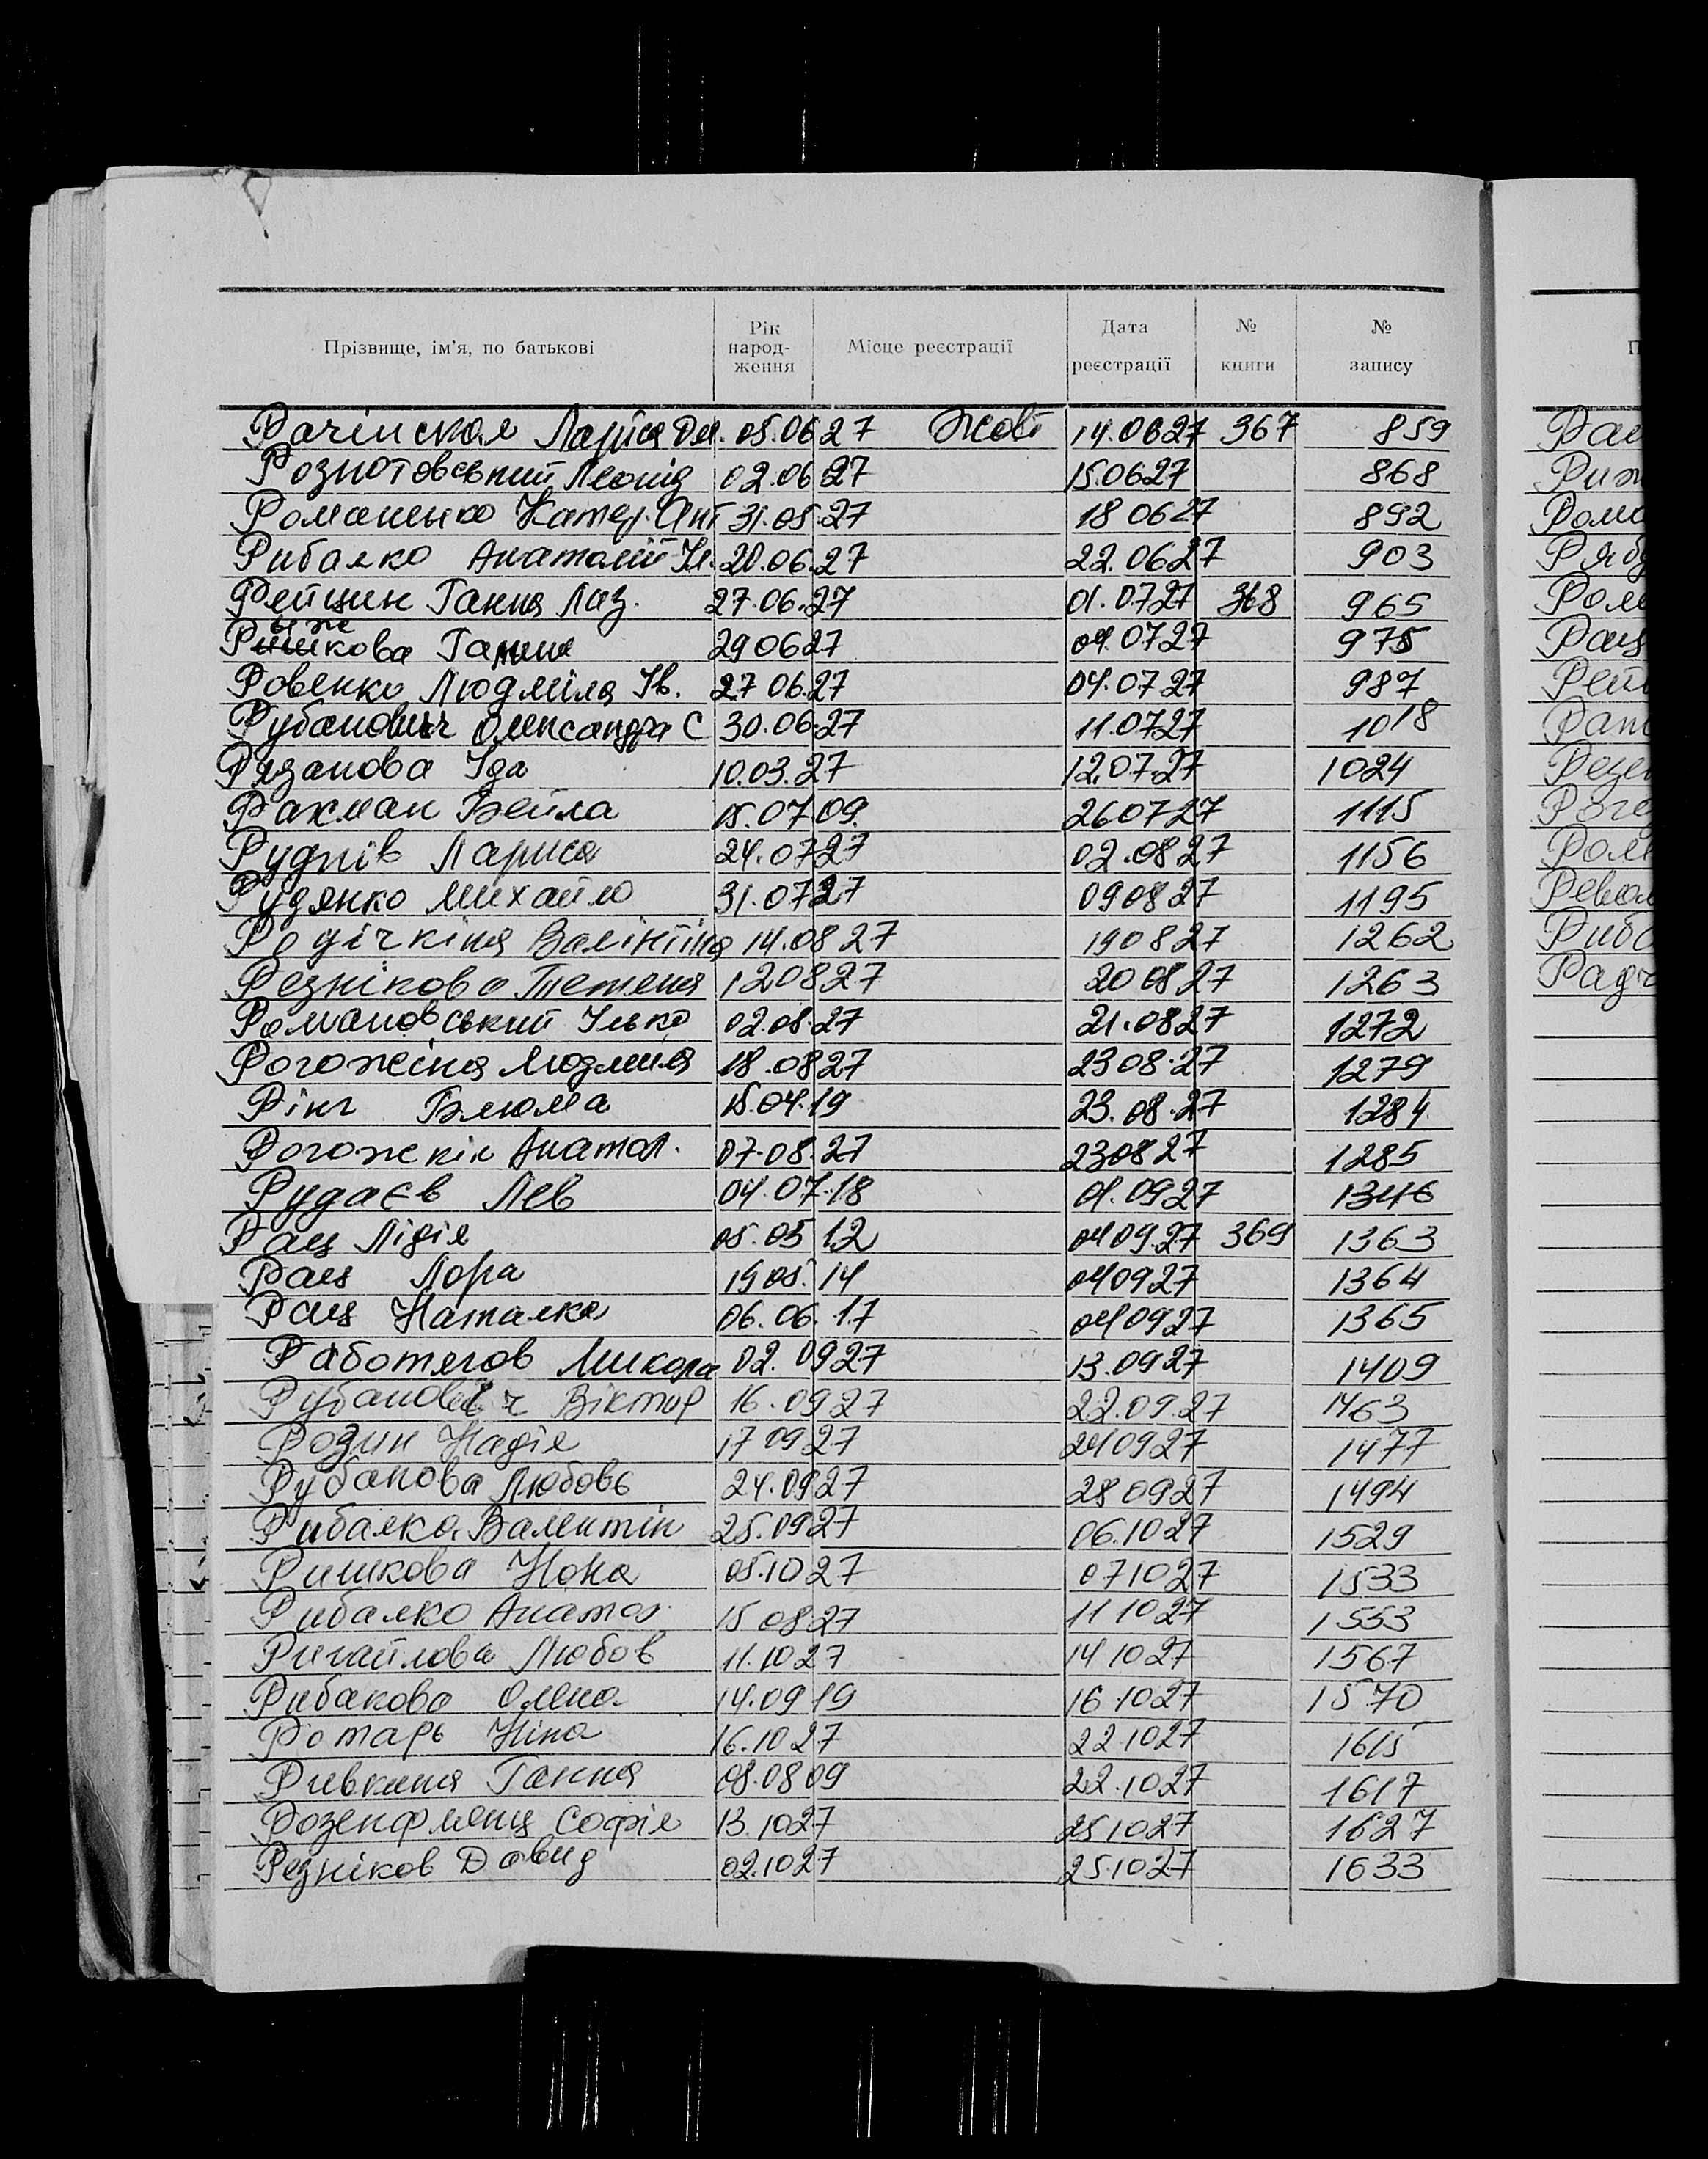 Прізвище, ім'я, по батькові Рік народження Місце реєстрації Дата реєстрації № книги № запису
Рачінская Лариса Дм. 05.06 27 Жовт 14.06 27 367 859
Леонід 02.06 27 15.06 27 868
Романенко Катер. Ант 31.05.27 18 06 27 892
Рибалко Анатолій 20.06.27 22.06 27 903
Рейцин Ганна Лаз. 27.06.27 01.07 27 368 965
Рижекова 29 06 27 04.07 27 975
Ровенко Людміла Ів. 27 06.27 04.07 27 987
Рубанович Олександра С 30.06.27 11.07 27 1018
Рязанова Іда 10.03.27 12.07.27 1024
Рахман Бейла 15.07 09. 26 07 27 1115
Руднів Лариса 24.07 27 02.08 27 1156
Рудянко Михайло 31.07 27 09 08 27 1195
Родічкіна Валінтіна 14.08 27 19 0 8 27 1262
Резнікова Тетеня 12 08 27 20 08 27 1263
Романовський Ілько 02.08.27 21.08 27 1272
Рогожіна Людмила 18.08 27 23 08.27 1279
Рінг Блюма 15.04.19 23.08.27 1284
Рогожкін Анатол. 07.08.27 23 08 27 1285
Рудаєв Лев 04.07.18 01.09 27 1346
Рац Лідія 05.05 12 04 09.27 369 1363
Рац Лора 19 05. 14 04 09 27 1364
Рац Наталка 06.06.17 04 09 27 1365
Работягов Микола 02.09 27 13.09 27 1409
Рубанович Віктор 16.09 27 22.09.27 1463
Розин Надія 17 09 27 24 09 27 1477
Рубанова Любовь 24.09 27 28 09 27 1494
Рибалка Валентін 25.09 27 06.10 27 1529
Ришкова Нона 05.10 27 07 10 27 1533
Рибалко Анатол 15 08 27 11 10 27 1553
Ригайлова Любов 11.10 27 14 10 27 1567
Рибакова Олена 14.09 19 16.10 27 1570
Ротарь Ніна 16.10 27 22 10 27 1615
Ривкина Ганна 08.08 09 22.10 27 1617
Розенфлянц Софія 13.10 27 25 10 27 1627
Резніков Давид 02.10 27 25.10 27 1633
П
Рац
Риж
Рома
Рябу
Ром
Рац
Рей
Рат
Резн
Ром
Револ
Риба
Радч